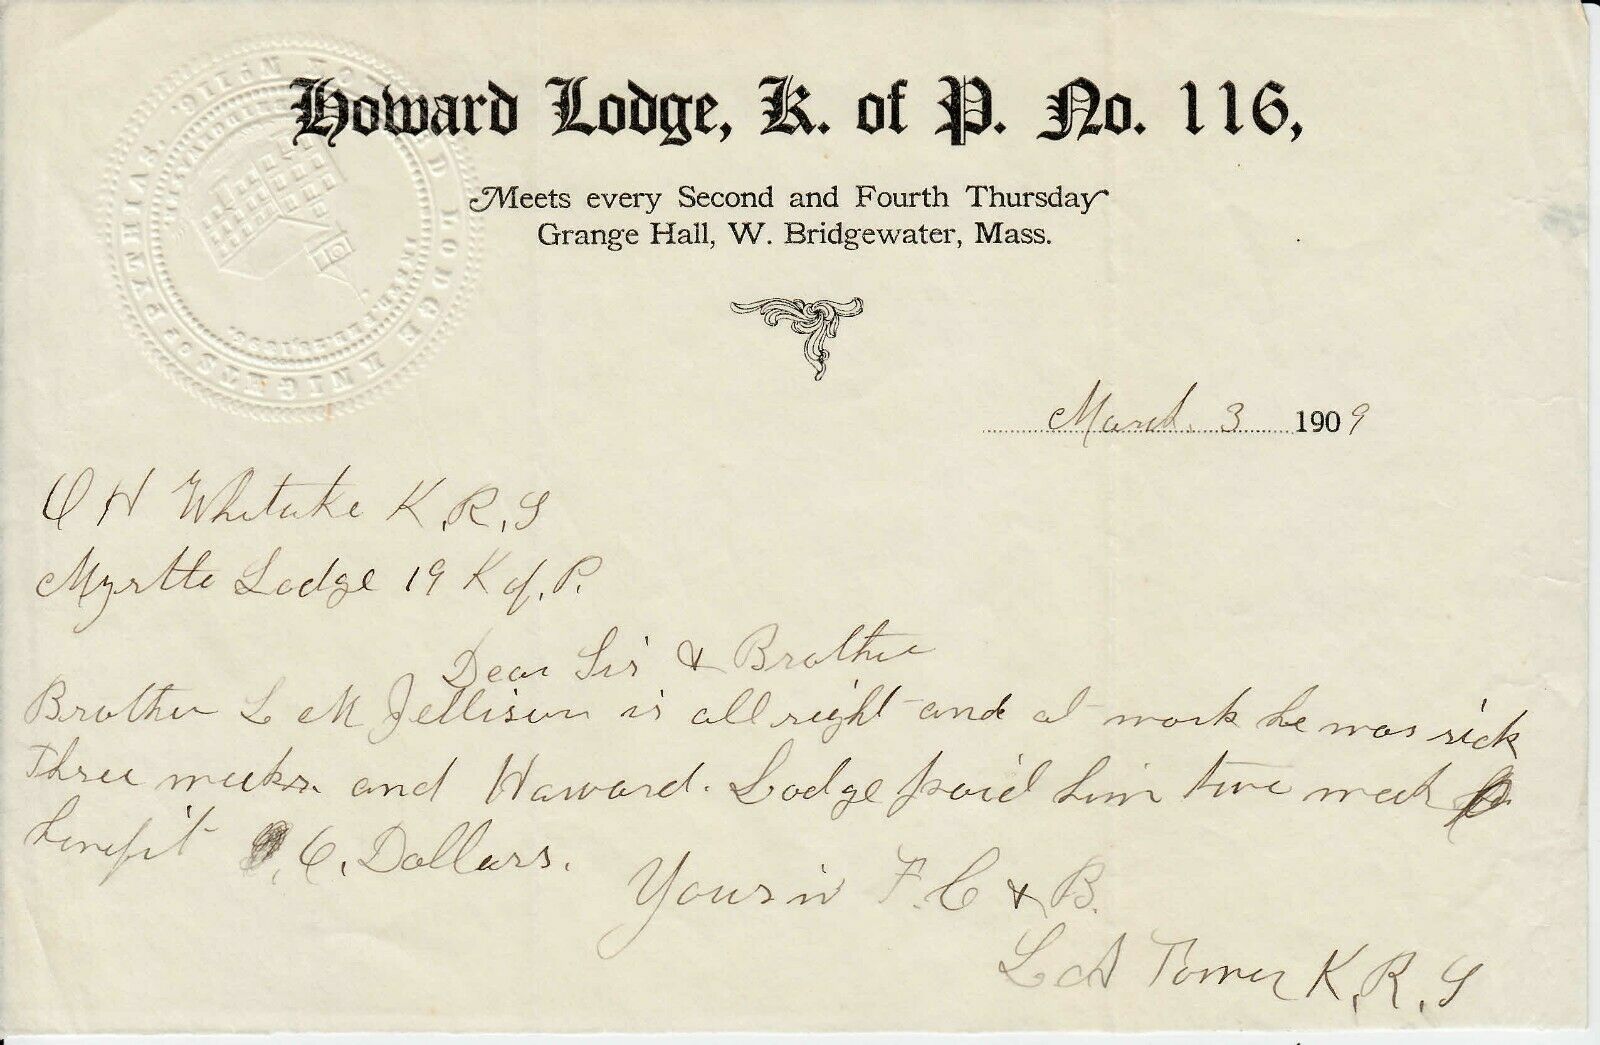 Howard Lodge, K. of P. No. 116,
Meets every Second and Fourth Thursday
Grange Hall, W. Bridgewater, Mass.
March. 3 1909
H Whitake K. R. S
Myrtle Lodge 19 K of. P.
Dear Sir & Brother
Brother L M Jellison is all right and at work he was sick
Three weeks. and Haward. Lodge paid him two week
benefit 6. Dollars.
Yours in F. C & B.
L A Tower K. R. S
HOWARD LODGE
KNIGHTS OF PYTHIAS.